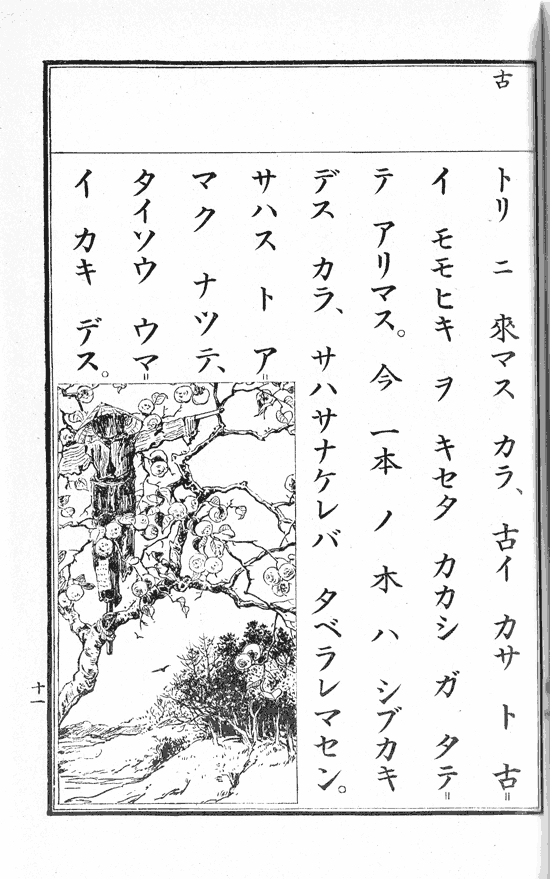 古
トリ ニ 來マス カラ、古イ カサ ト 古゠
イ モモヒキ ヲ キセタ カカシ ガ タテ゠
テ アリマス。今 一本 ノ 木 ハ シブカキ
デス カラ、サハサナケレバ タベラレマセン。
サハス ト ア゠
マク ナツテ、
タイソウ ウマ゠
イ カキ デス。
十一